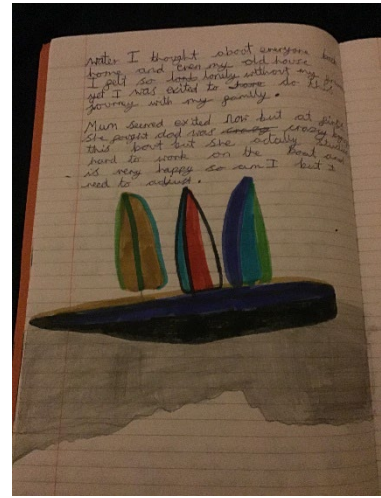 water I thought about everyone back
home and even my old house
I felt so lonely without my
yet I was exited to do this
journey with my family.
Mum seemed exited now but at first
she thought dad was crazy
this boat but she actully studied
hard to work on the boat and
is very happy so am I but I
need to adjust.